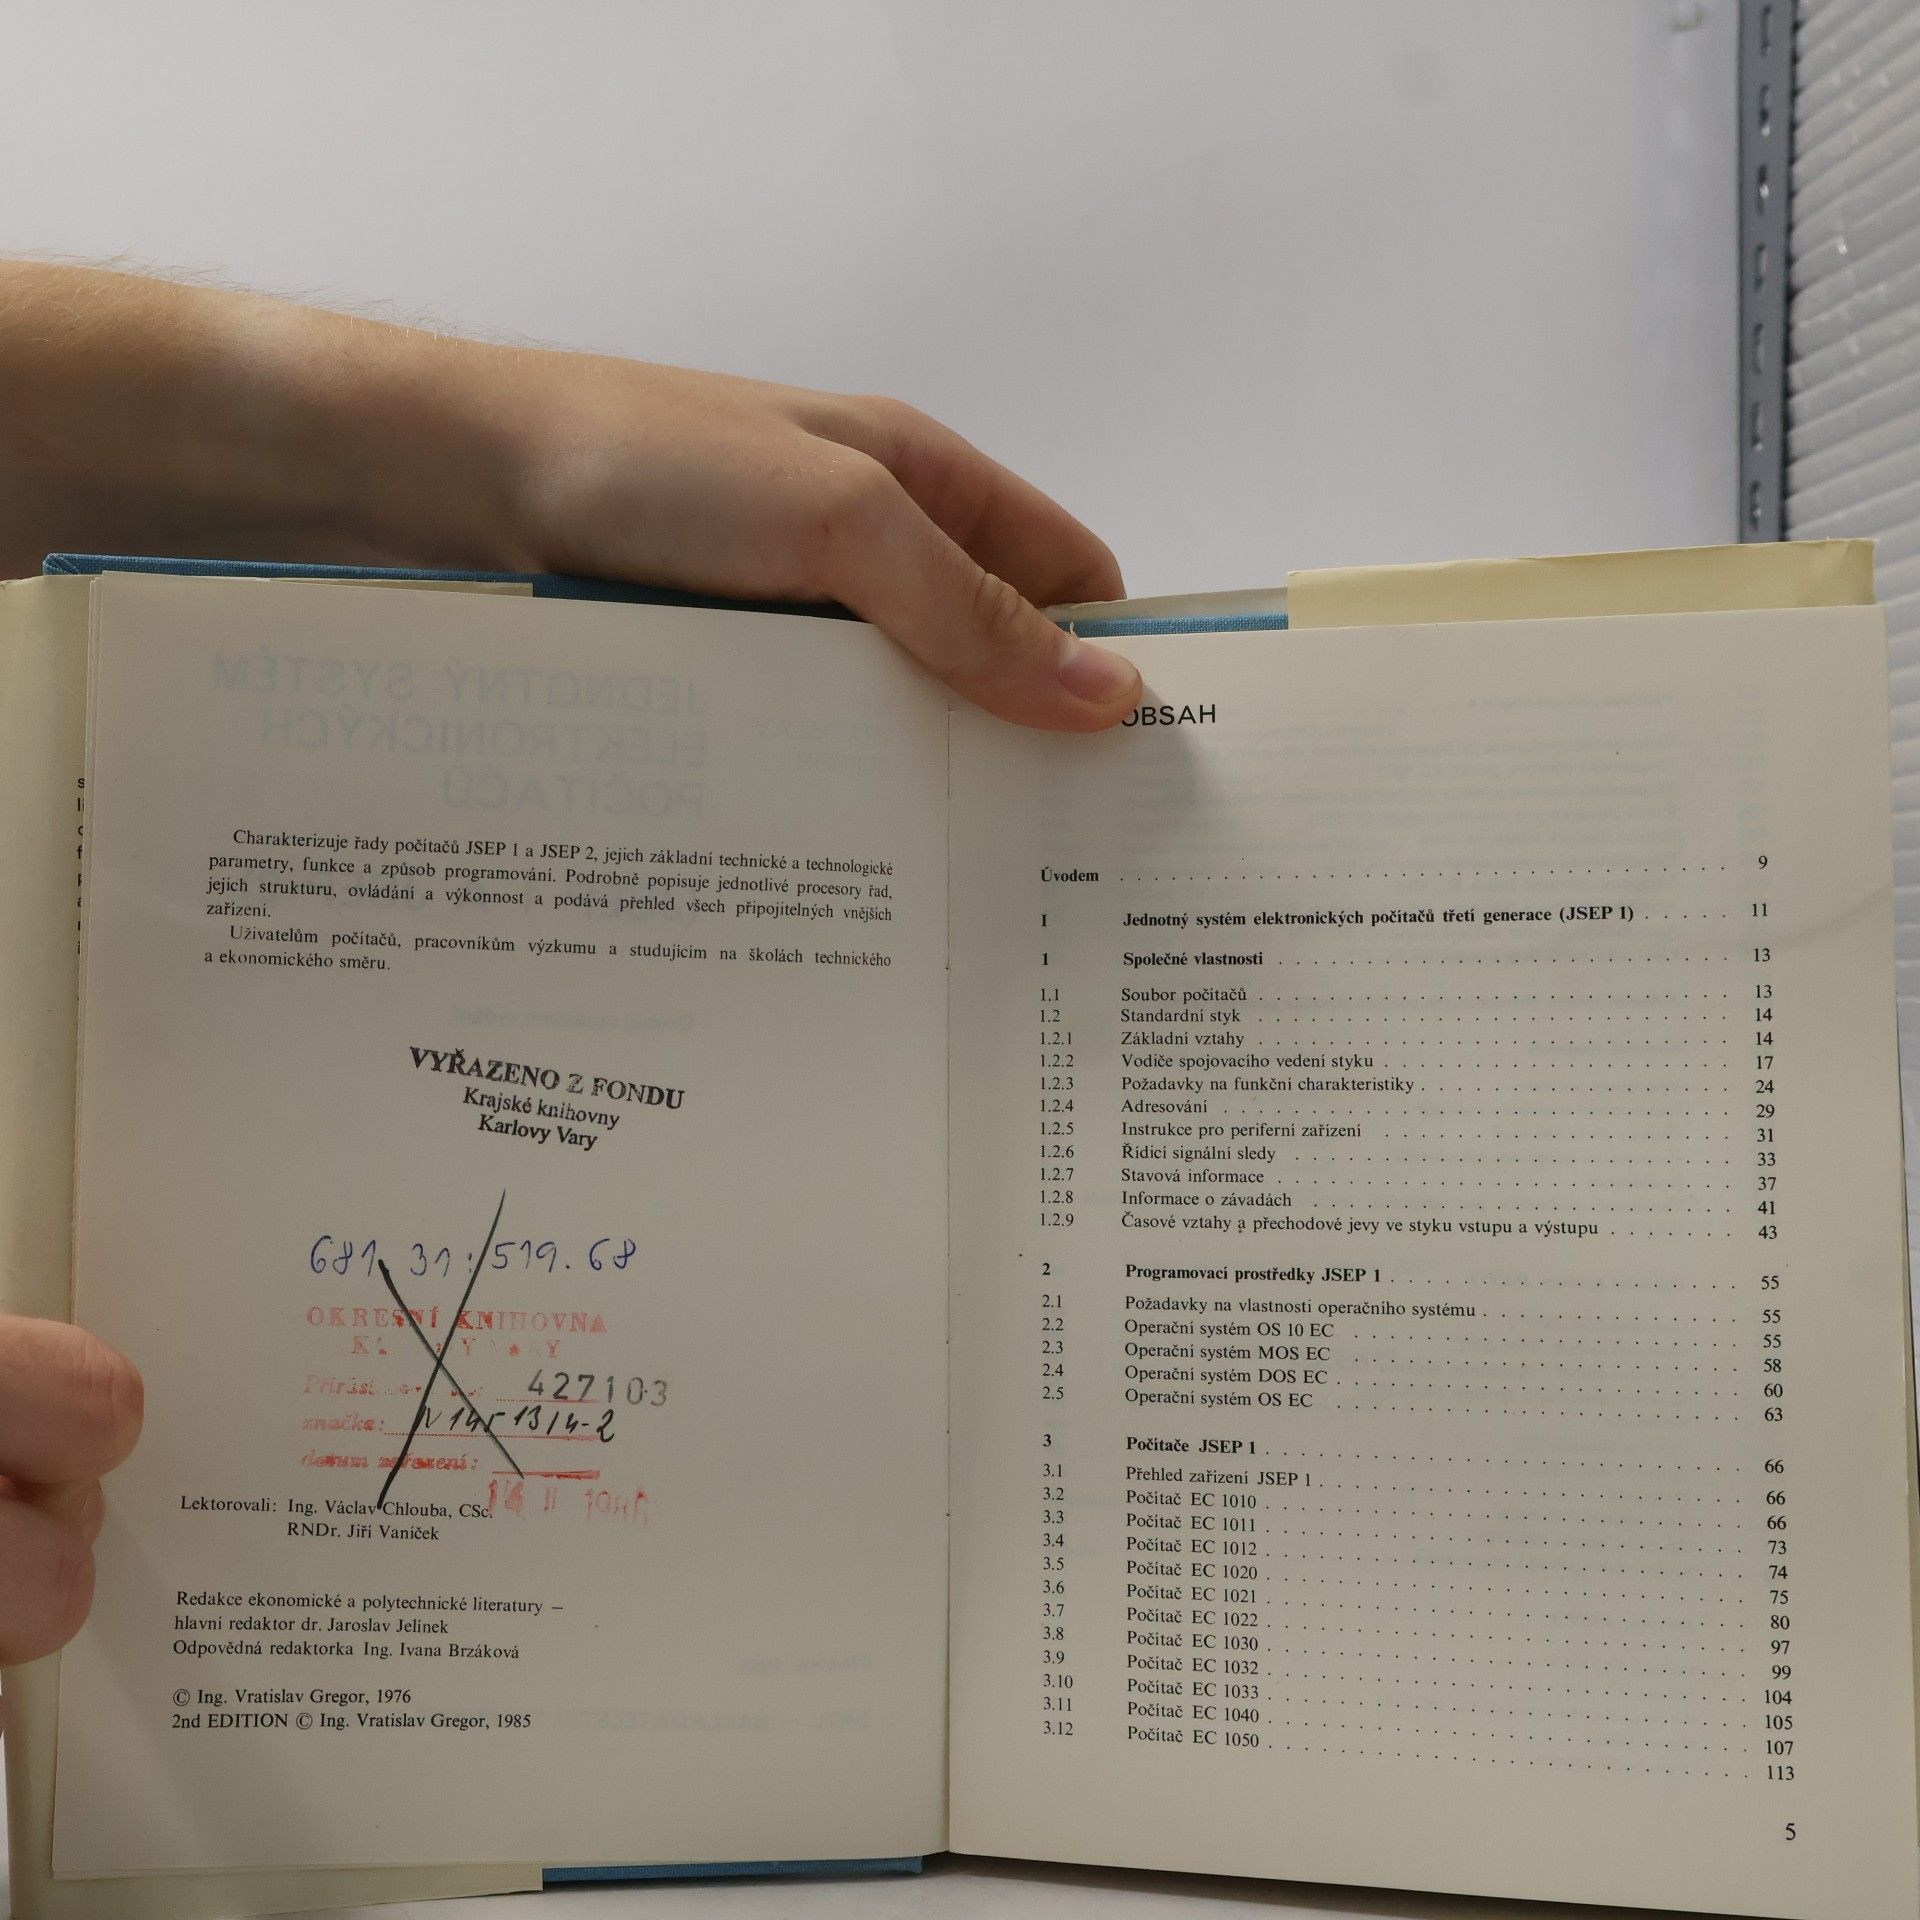 Charakterizuje řady počítačů JSEP 1 a JSEP 2, jejich základní technické a technologické
parametry, funkce a způsob programování. Podrobně popisuje jednotlivé procesory řad,
jejich strukturu, ovládání a výkonnost a podává přehled všech připojitelných vnějších
zařízení.
Uživatelům počítačů, pracovníkům výzkumu a studujícím na školách technického
a ekonomického směru.
VYŘAZENO Z FONDU
Krajské knihovny
Karlovy Vary
681.31:519.68
OKRESNÍ KNIHOVNA
427103
značka:
datum zařazení:
Lektorovali: Ing. Václav Chlouba, CSc.
RNDr. Jiří Vaníček
Redakce ekonomické a polytechnické literatury –
hlavní redaktor dr. Jaroslav Jelínek
Odpovědná redaktorka Ing. Ivana Brzáková
© Ing. Vratislav Gregor, 1976
2nd EDITION © Ing. Vratislav Gregor, 1985
OBSAH
Úvodem . . . . . 9
I Jednotný systém elektronických počítačů třetí generace (JSEP 1) . . . . . 11
1 Společné vlastnosti . . . . . 13
1.1 Soubor počítačů . . . . . 13
1.2 Standardní styk . . . . . 14
1.2.1 Základní vztahy . . . . . 14
1.2.2 Vodiče spojovacího vedení styku . . . . . 17
1.2.3 Požadavky na funkční charakteristiky . . . . . 24
1.2.4 Adresování . . . . . 29
1.2.5 Instrukce pro periferní zařízení . . . . . 31
1.2.6 Řídicí signální sledy . . . . . 33
1.2.7 Stavová informace . . . . . 37
1.2.8 Informace o závadách . . . . . 41
1.2.9 Časové vztahy a přechodové jevy ve styku vstupu a výstupu . . . . . 43
2 Programovací prostředky JSEP 1 . . . . . 55
2.1 Požadavky na vlastnosti operačního systému . . . . . 55
2.2 Operační systém OS 10 EC . . . . . 55
2.3 Operační systém MOS EC . . . . . 58
2.4 Operační systém DOS EC . . . . . 60
2.5 Operační systém OS EC . . . . . 63
3 Počítače JSEP 1 . . . . . 66
3.1 Přehled zařízení JSEP 1 . . . . . 66
3.2 Počítač EC 1010 . . . . . 66
3.3 Počítač EC 1011 . . . . . 73
3.4 Počítač EC 1012 . . . . . 74
3.5 Počítač EC 1020 . . . . . 75
3.6 Počítač EC 1021 . . . . . 80
3.7 Počítač EC 1022 . . . . . 97
3.8 Počítač EC 1030 . . . . . 99
3.9 Počítač EC 1032 . . . . . 104
3.10 Počítač EC 1033 . . . . . 105
3.11 Počítač EC 1040 . . . . . 107
3.12 Počítač EC 1050 . . . . . 113
5